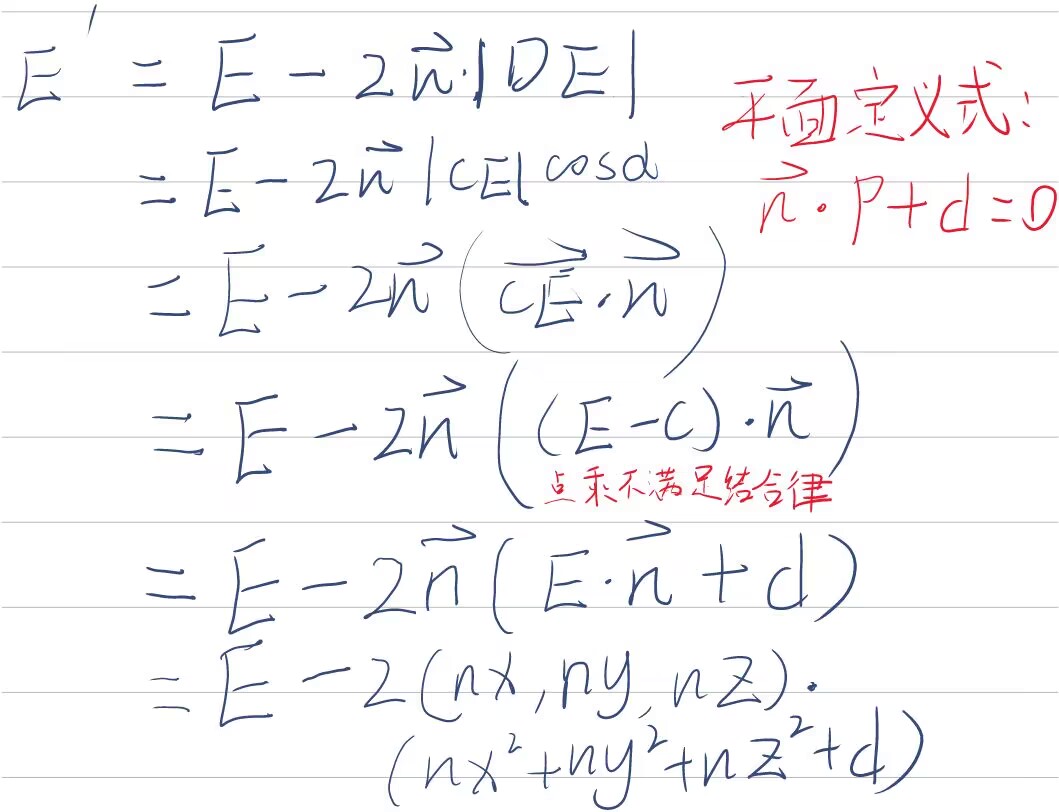 E' = E - 2n⃗·|DE|
= E - 2n⃗ |CE| cosα
= E - 2n⃗ (CE⃗ · n⃗)
= E - 2n⃗ ((E - C) · n⃗)
点乘不满足结合律
= E - 2n⃗ (E · n⃗ + d)
= E - 2(nx, ny, nz) ·
(nx² + ny² + nz² + d)
平面定义式:
n⃗ · P + d = 0